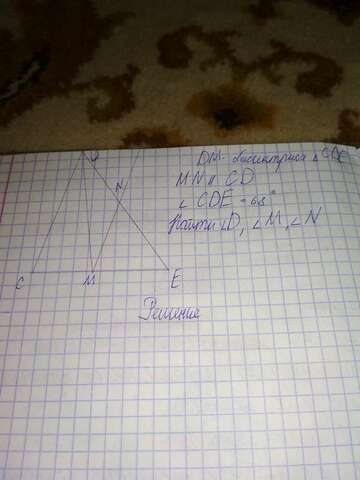 D
N
C
M
E
DM - биссектриса △ CDE
MN || CD
∠ CDE = 68°
Найти ∠D, ∠M, ∠N
Решение